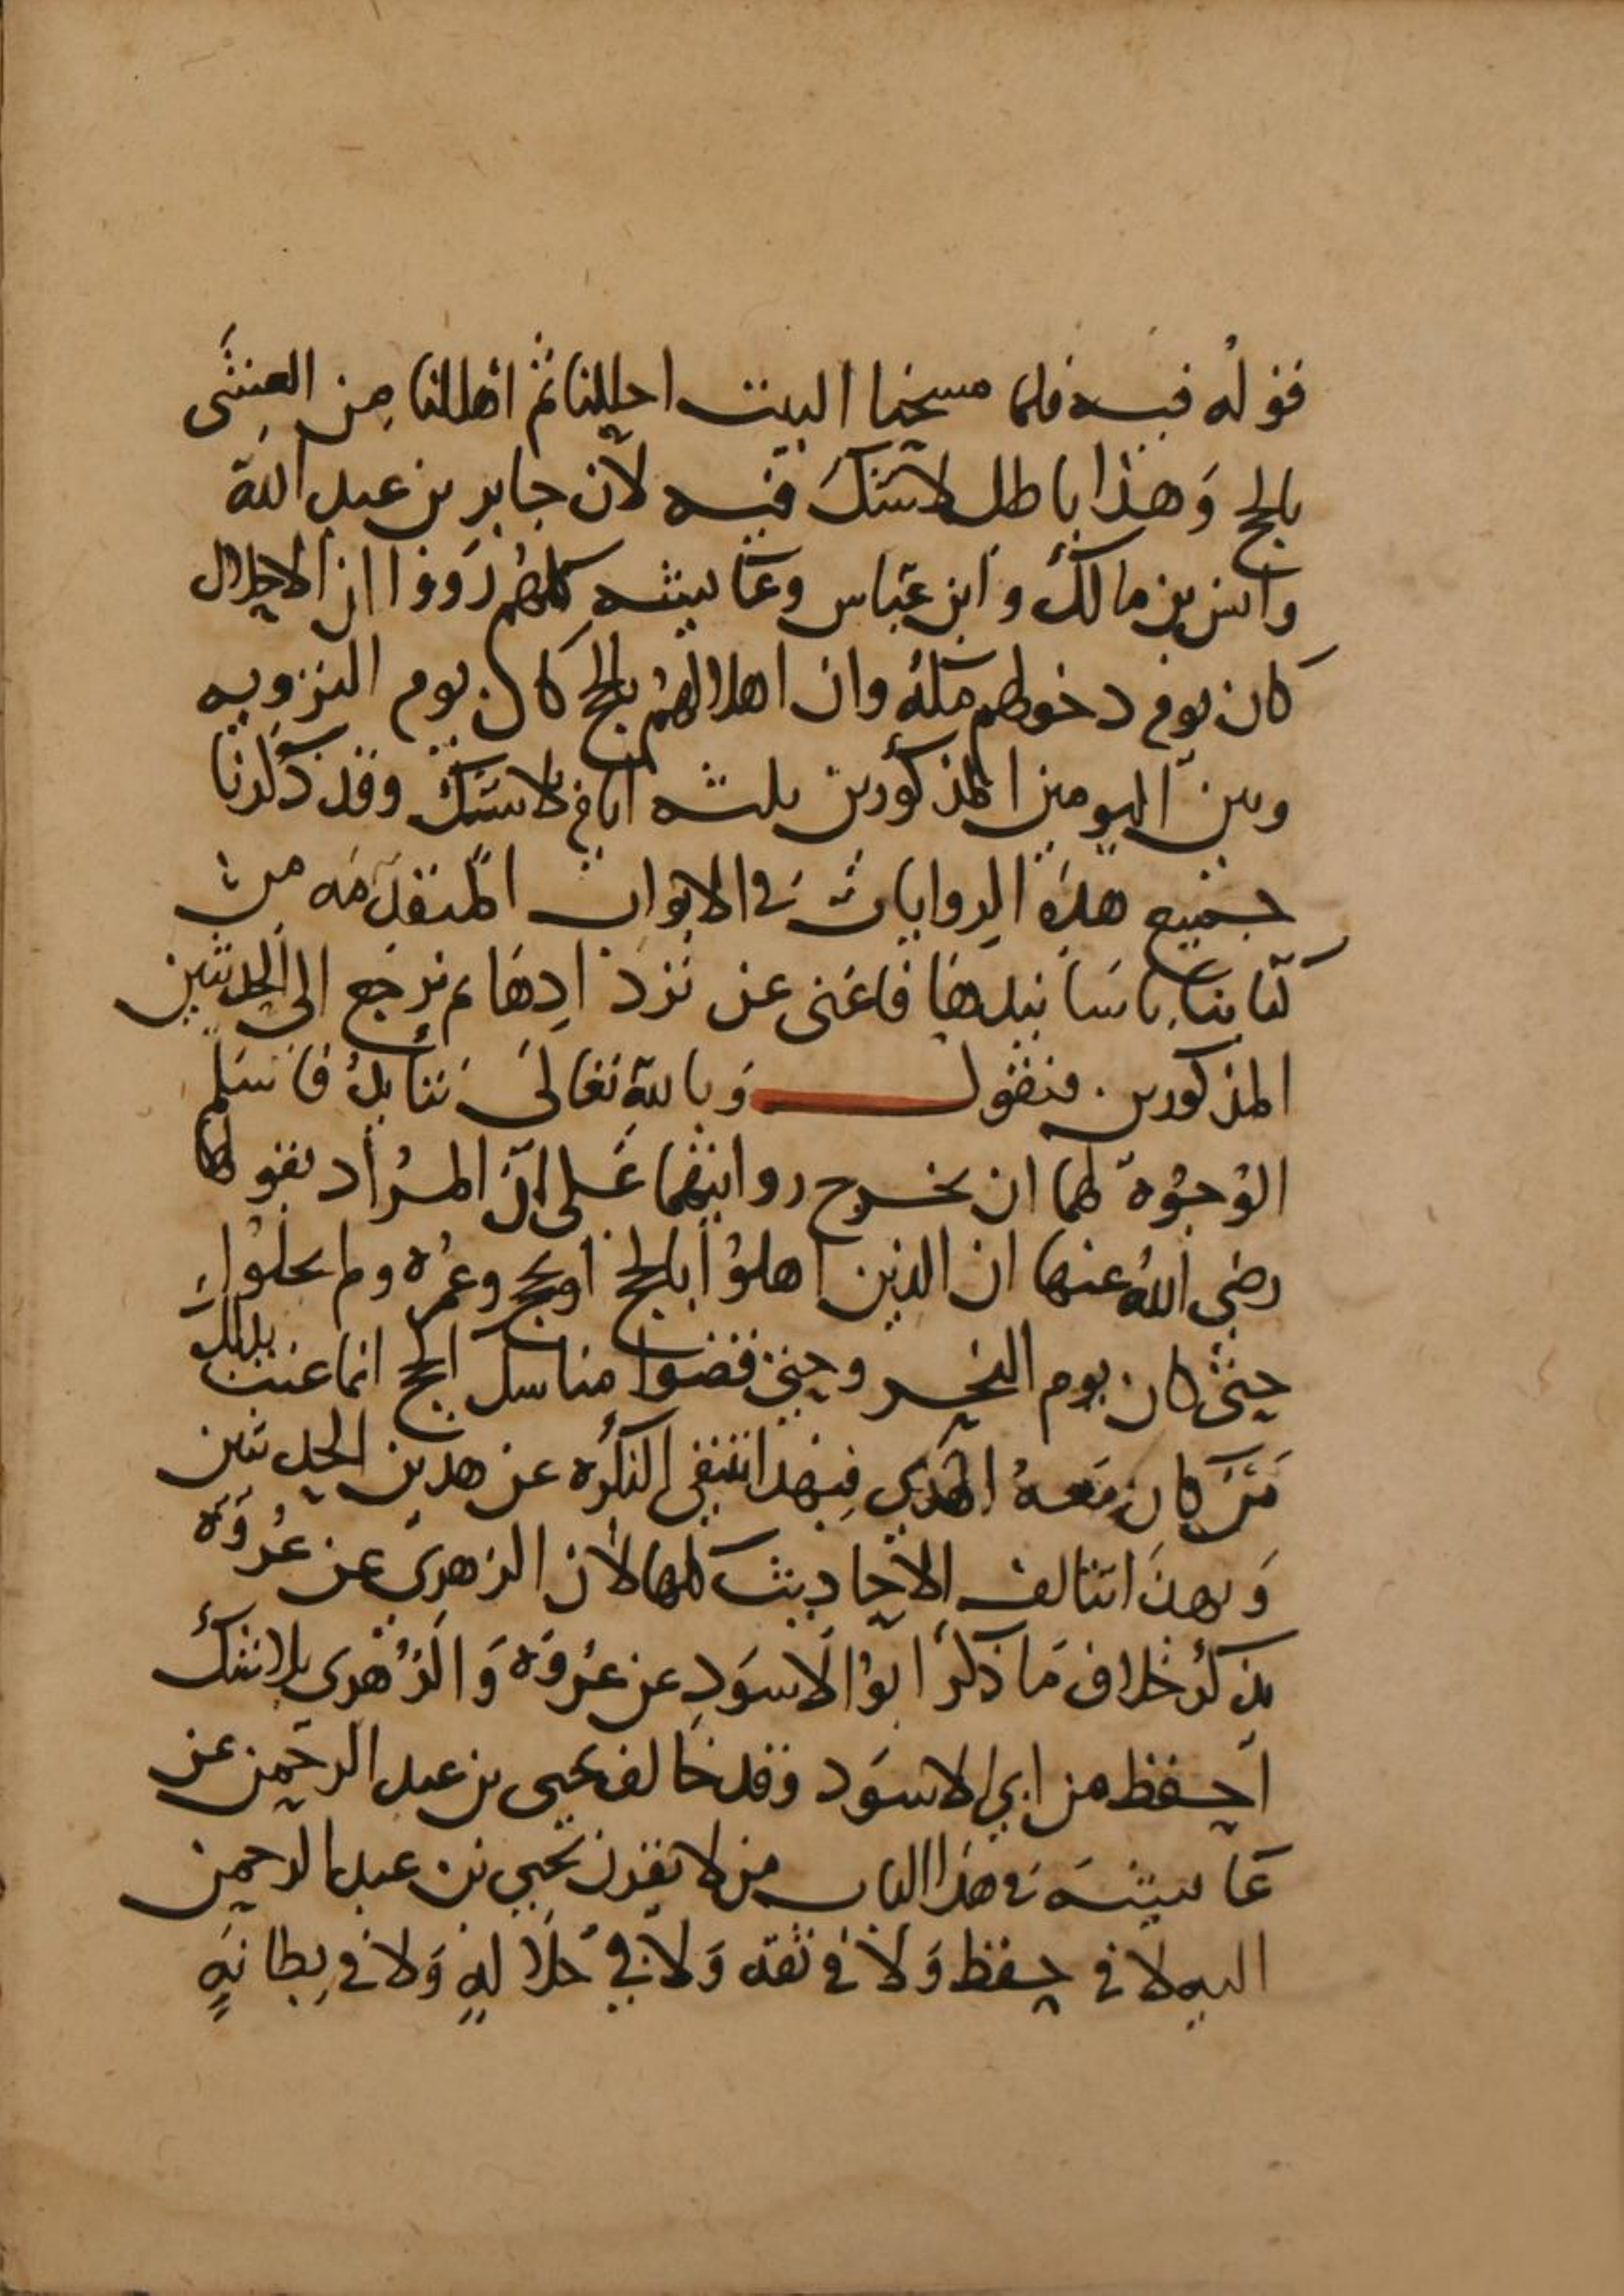 قوله فيه فلما مسحنا البيت احللنا ثم اهللنا من العشى
بالحج وهذا باطل لا شك فيه لان جابر بن عبد الله
وانس بن مالك وابن عباس وعايشه كلهم رووا ان الاحلال
كان يوم دخولهم مكة وان اهلالهم بالحج كان يوم الترويه
وبين اليومين المذكورين ثلثه ايام بلا شك وقد ذكرنا
جميع هذه الروايات في الابواب المتقدمه من
كتابنا باسانيدها فاغنى عن تردادها ثم نرجع الى الحديثين
المذكورين . فنقول وبالله تعالى نتايد فاسلم
الوجوه لهما ان نخرج روايتهما على ان المراد بقولها
رضى الله عنها ان الذين اهلوا بالحج او بحج وعمره ولم يحلوا
حتى كان يوم النحر وحين قضوا مناسك الحج انما عنت بذلك
من كان معه الهدي فبهذا تنتفي النكره عن هذين الحديثين
وبهذا تتالف الاحاديث كلها لان الزهرى عن عروة
يذكر خلاف ما ذكر ابو الاسود عن عروة والزهري بلا شك
احفظ من ابي الاسود وقد خالف يحيى بن عبد الرحمن عن
عايشه في هذا الباب من لا يقرن يحيي بن عبد الرحمن
اليه لا في حفظ ولا في ثقه ولا في جلالةٍ ولا في بطانةٍ